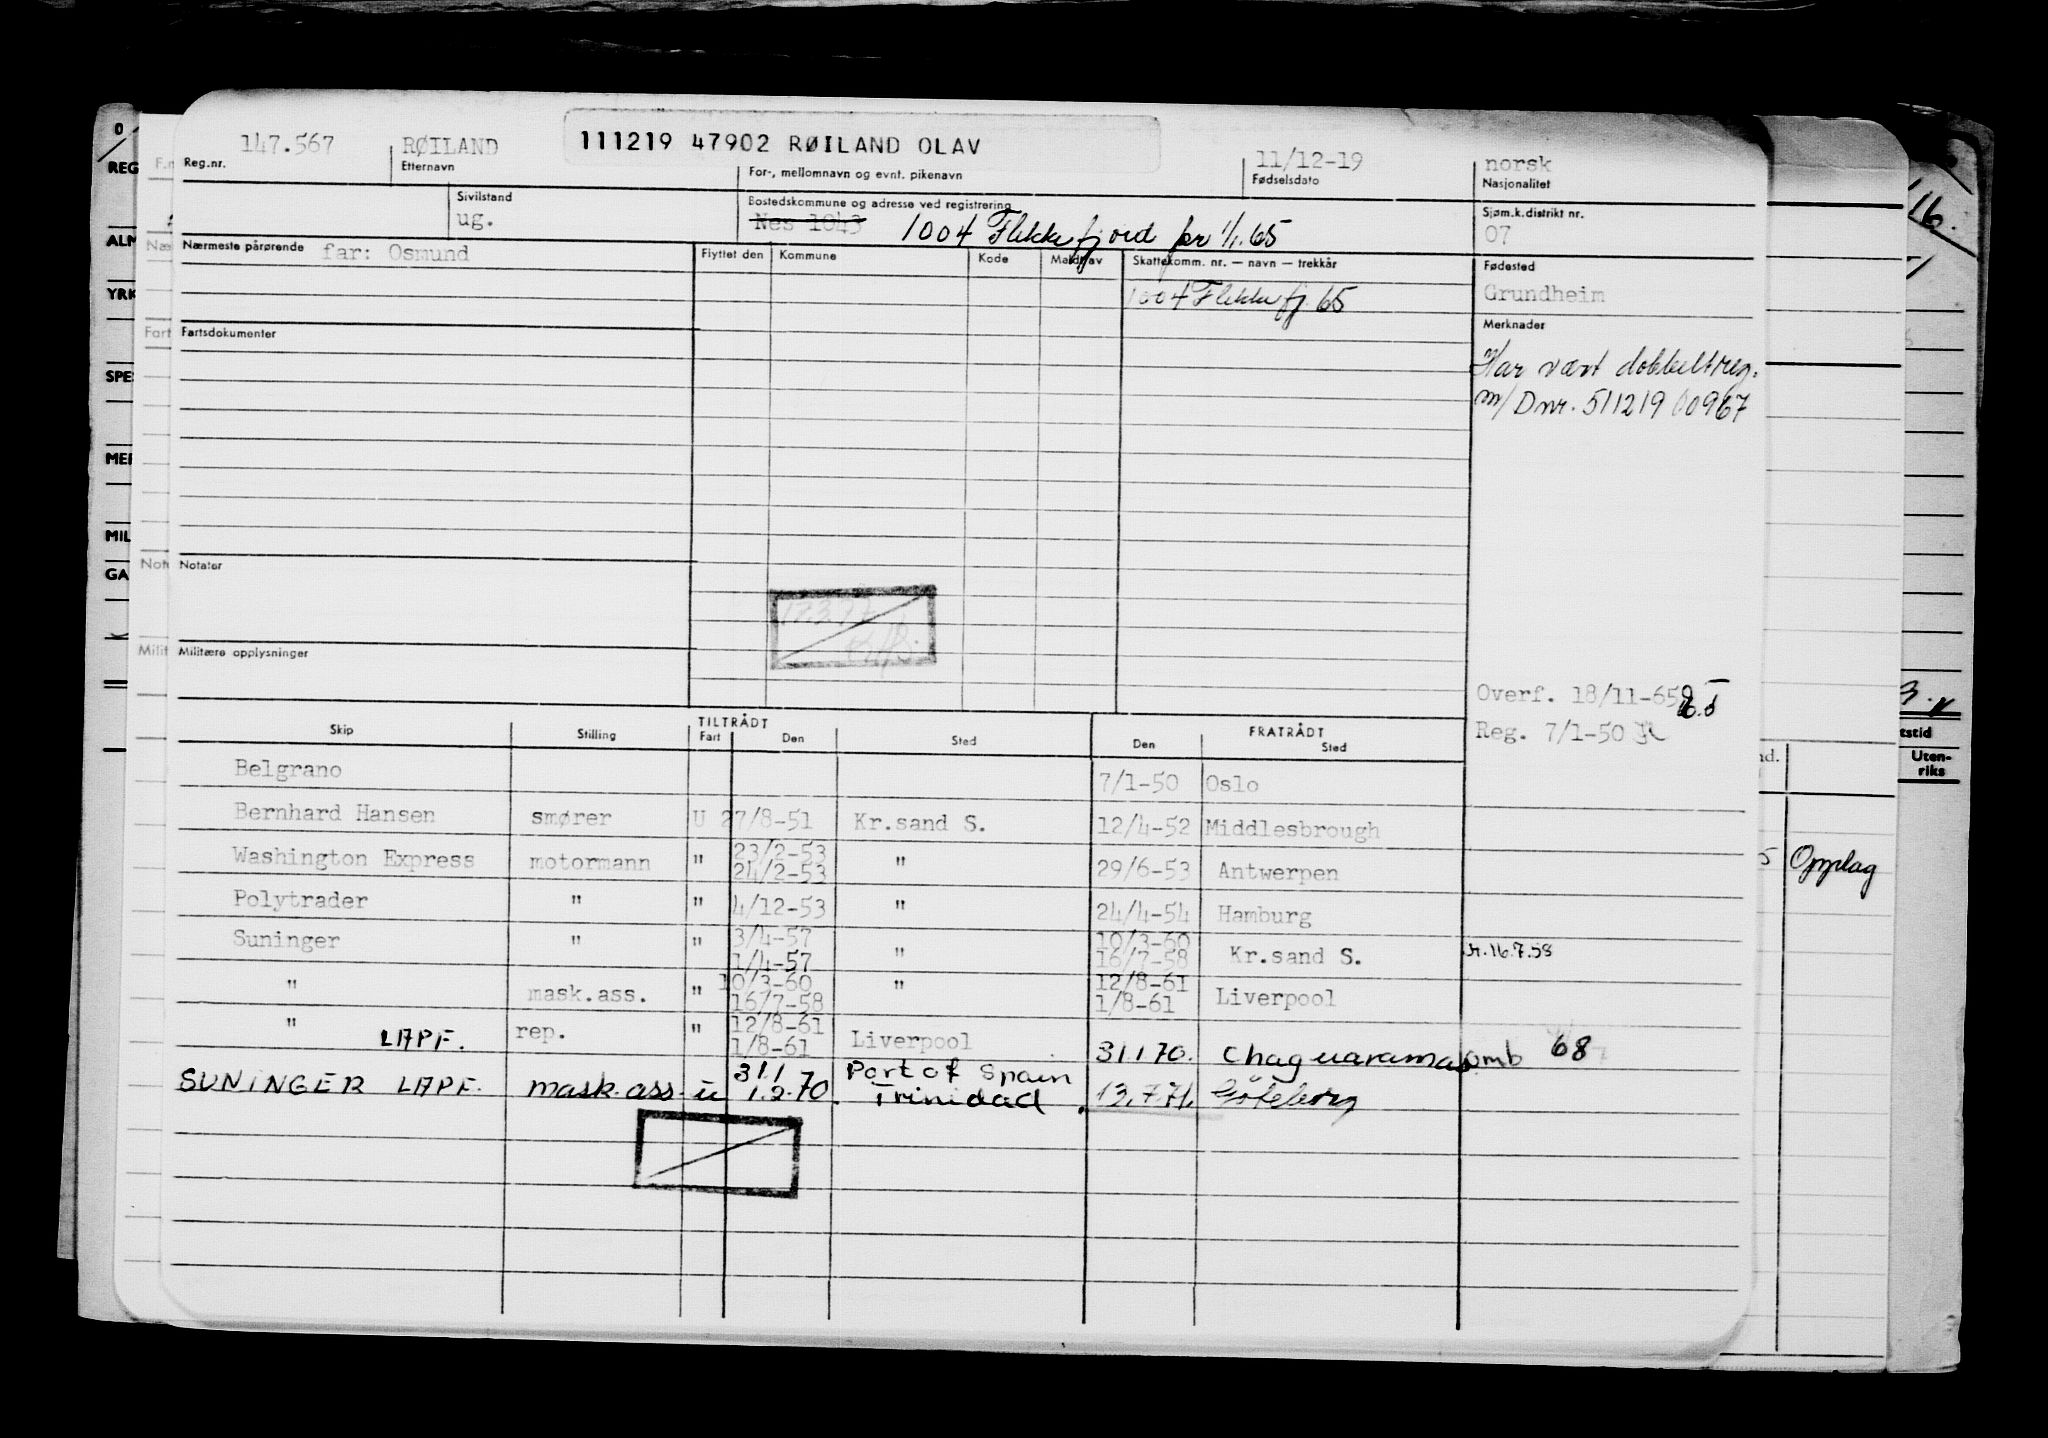 147.567 RØILAND 111219 47902 RØILAND OLAV 11/12-19 norsk
Reg.nr. Etternavn For-, mellomnavn og evnt. pikenavn Fødselsdato Nasjonalitet
Sivilstand Bostedskommune og adresse ved registrering Sjøm.k.distrikt nr.
ug. Nes 1043 1004 Flekkefjord pr 1/1.65 07
Nærmeste pårørende far: Osmund Flyttet den Kommune Kode Meldt av Skattekomm. nr. — navn — trekkår Fødested
1004 Flekkefj. 65 Grundheim
Fartsdokumenter Merknader
Har vært dobbeltreg.
m/ Dnr. 511219 00967
Notater
Militære opplysninger
Overf. 18/11-65
Reg. 7/1-50
TILTRÅDT FRATRÅDT
Skip Stilling Fart Den Sted Den Sted
Belgrano 7/1-50 Oslo
Bernhard Hansen smører U 27/8-51 Kr.sand S. 12/4-52 Middlesbrough
Washington Express motormann " 23/2-53 24/2-53 " 29/6-53 Antwerpen
Polytrader " " 4/12-53 " 24/4-54 Hamburg
Suninger " " 3/4-57 1/4-57 " 10/3-60 16/7-58 Kr.sand S. 16.7.58
" mask.ass. " 10/3-60 16/7-58 " 12/8-61 1/8-61 Liverpool
" LAPF. rep. " 12/8-61 1/8-61 Liverpool 31.1 70. Chaguaramas omb 68
SUNINGER LAPF. mask.ass. u 31.1 1.2.70. Port of Spain Trinidad 13.7.71. Göteborg
0
REG
ALM
YRK
SPE
MER
MIL
GA
F.n
Næ
Fart
Not
Milit
16.
tstid
Uten-
riks
nd.
Opplag